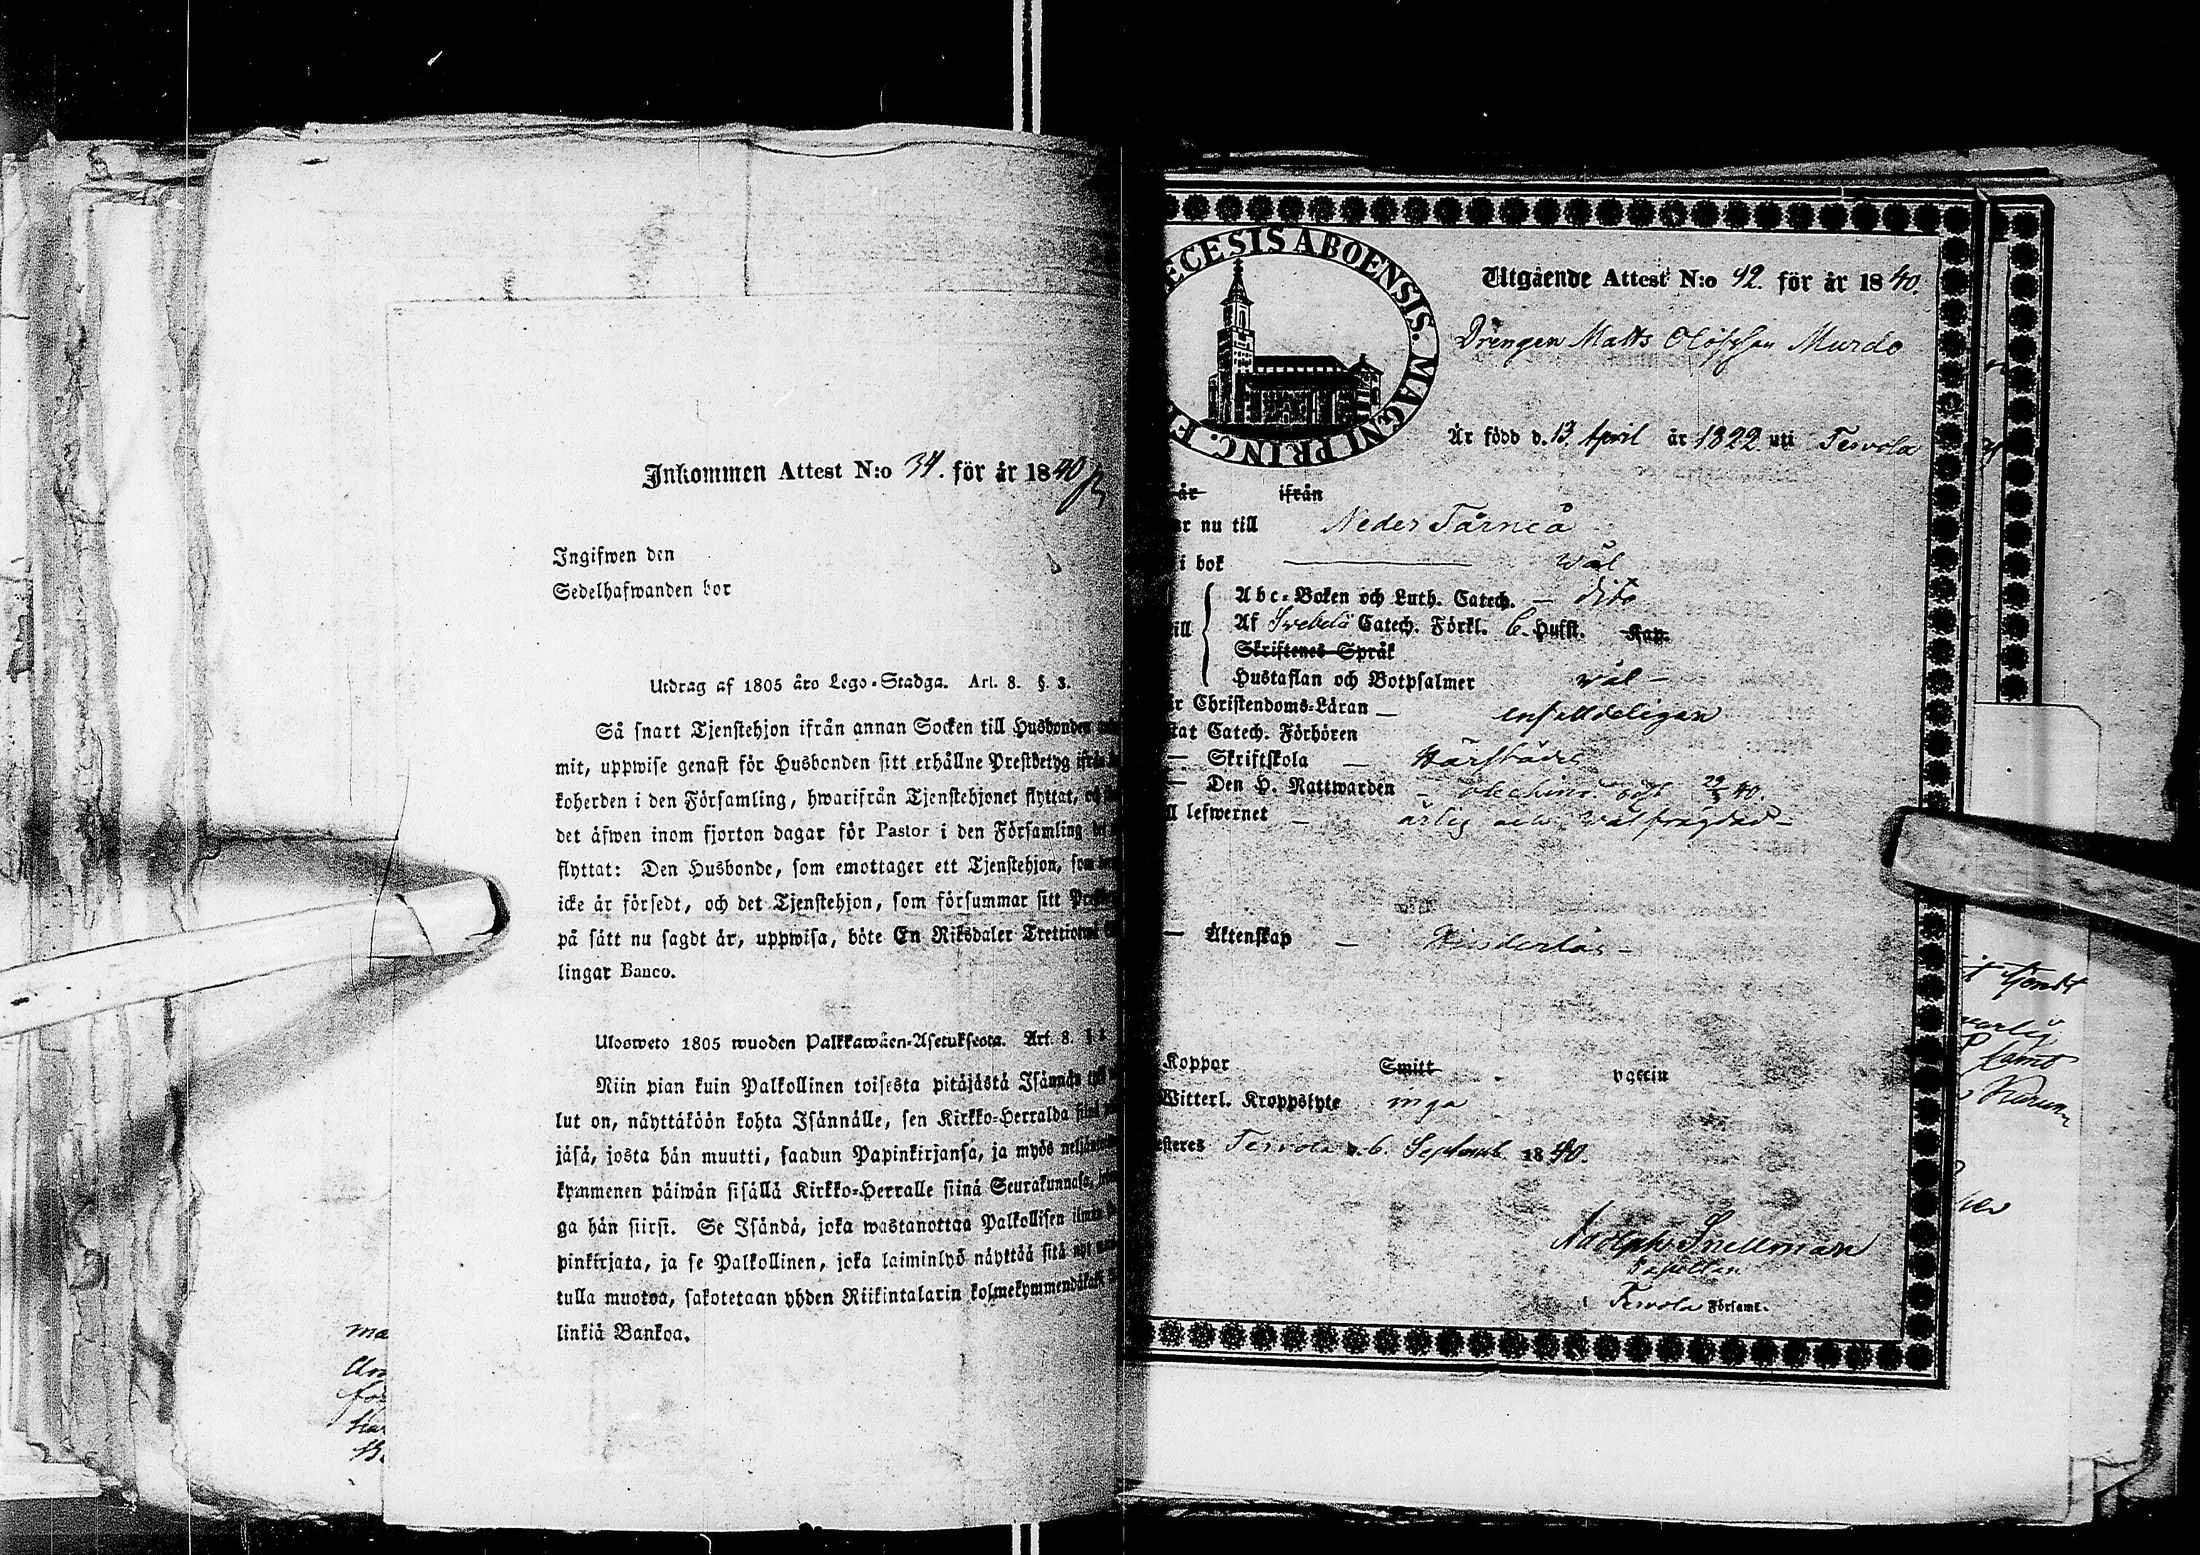 Inkommen Attest N:o 34. för år 1840
Ingifwen den
Sedelhafwanden bor
Utdrag af 1805 års Lego-Stadga. Art. 8. §. 3.
Så snart Tjenstehjon ifrån annan Socken till Husbonden
mit, uppwise genast för Husbonden sitt erhållne Prestbetyg ifrån
koherden i den Församling, hwarifrån Tjenstehjonet flyttat,
det äfwen inom fjorton dagar för Pastor i den Församling
flyttat: Den Husbonde, som emottager ett Tjenstehjon, som
icke är försedt, och det Tjenstehjon, som försummar sitt
på sätt nu sagdt är, uppwisa, böte En Riksdaler Trettiotwå
lingar Banco.
Ulosweto 1805 wuoden Palkkawäen-Asetuksesta. Art. 8. §
Niin pian kuin Palkollinen toisesta pitäjästä Isännän
lut on, näyttäköön kohta Isännälle, sen Kirkko-Herralda
jäsä, josta hän muutti, saadun Papinkirjansa, ja myös
kymmenen päiwän sisällä Kirkko-Herralle siinä Seurakunnasa,
ga hän siirsi. Se Isändä, joka wastanottaa Palkollisen ilman
pinkirjata, ja se Palkollinen, joka laiminlyö näyttää sitä nyt
tulla muotoa, sakotetaan yhden Riikintalarin kolmekymmendäkaksi
linkiä Bankoa.
ECESIS ABOENSIS. MAGNI PRINC. F
Utgående Attest N:o 42. för år 1840.
Drengen Matts Olofsson Murdo
Är född d. 13. April år 1822. uti Tervola
är ifrån
nu till Neder Tårneå
i bok wäl
Abc-Boken och Luth. Catech. – dito
Af Svebelii Catech. Förkl. 6. Hufst. Kap.
Skriftenes Språk
Hustaflan och Botpsalmer wäl –
Christendoms-Läran – enfalldeligan
Catech. Förhören
– Skriftskola –
– Den H. Nattwarden – 40.
lefwernet – ärlig och wälfrägdad –
– Äktenskap – Hinderlös –
Koppor Smitt vaccin
Witterl. Kroppslyte inga
Tervola d. 6. Septemb. 1840.
Adolph Snellman
Capellan
i Tervola Församl.